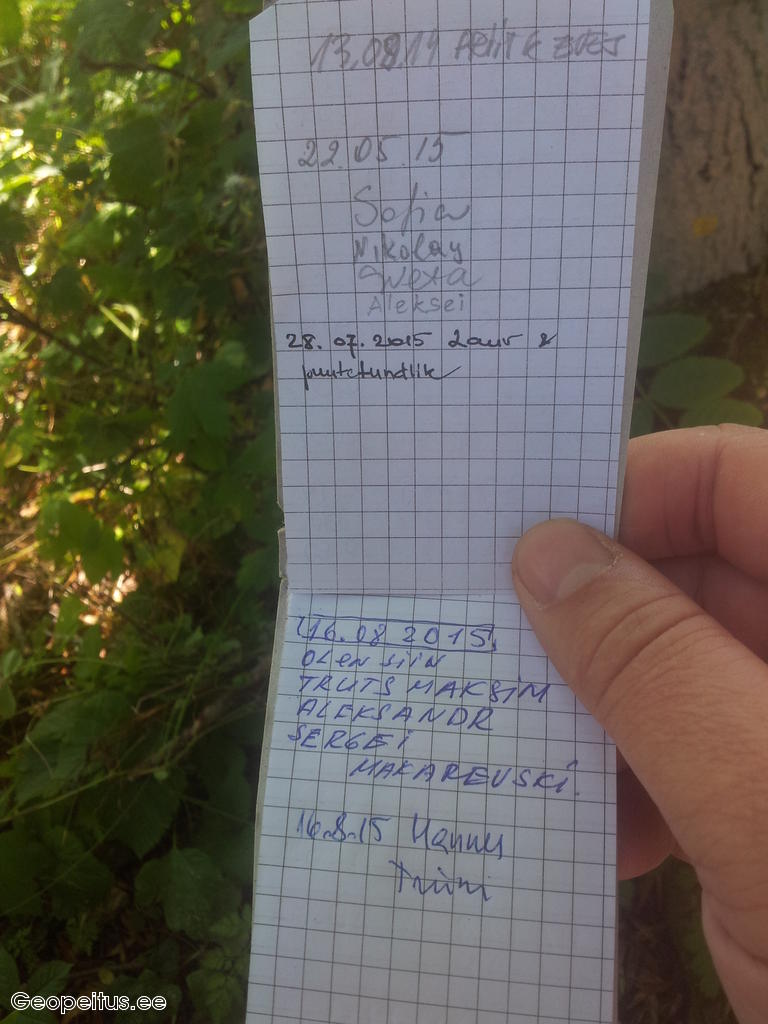 13.08.14
22.05.15
Sofia
Nikolay
Sveta
Aleksei
28.07.2015 Laur &
16.08 2015.
OLEN SIIN
TRUTS MAKSIM
ALEKSANDR
SERGEI
MAKAREVSKi.
16.8.15 Hannu
Triini
Geopeitus.ee